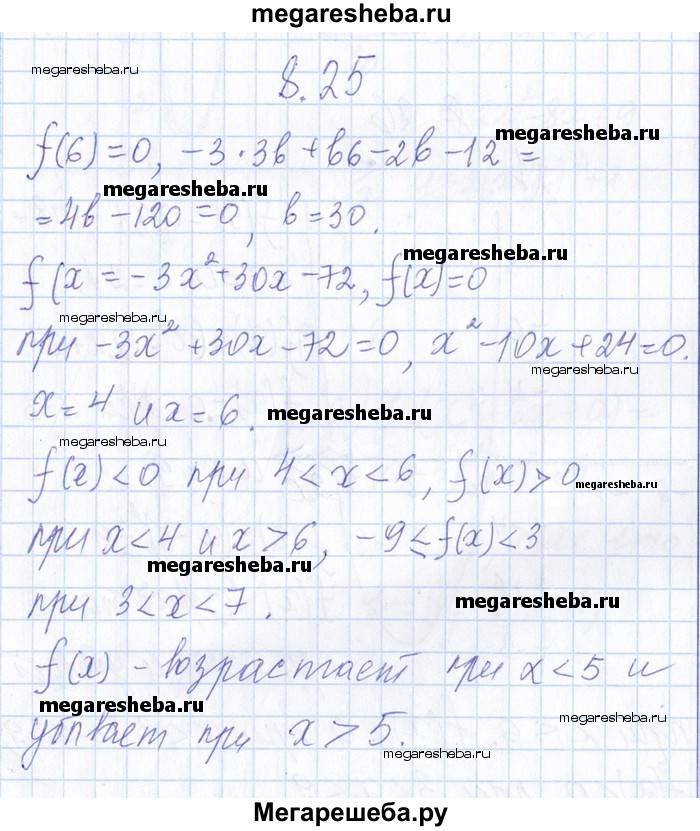 megaresheba.ru
megaresheba.ru
8.25
f(6)=0, -3·3в+в6-2в-12= megaresheba.ru
megaresheba.ru
=4в-120=0, в=30.
megaresheba.ru
f(x=-3x²+30x-72, f(x)=0
megaresheba.ru
при -3x²+30x-72=0, x²-10x+24=0.
megaresheba.ru
x=4 и x=6. megaresheba.ru
megaresheba.ru
f(x)<0 при 4<x<6, f(x)>0 megaresheba.ru
при x<4 и x>6, -9≤f(x)<3
megaresheba.ru
при 3<x<7. megaresheba.ru
f(x) - возрастает при x<5 и
megaresheba.ru
убывает при x>5. megaresheba.ru
megaresheba.ru
Мегарешеба.ру